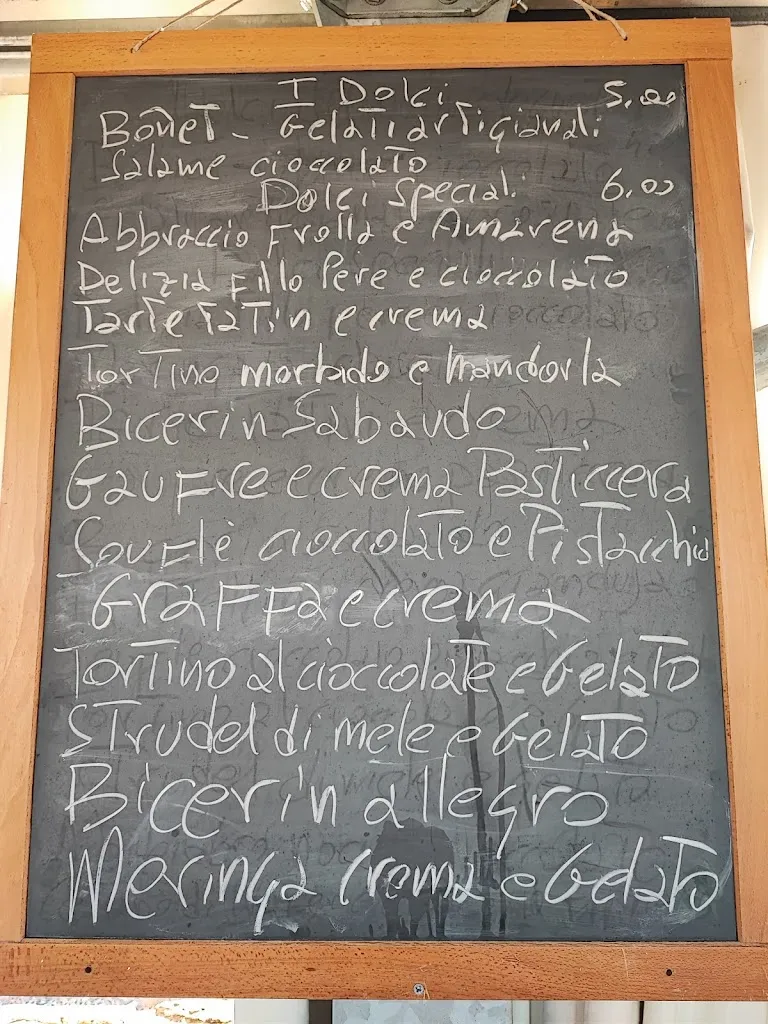 I Dolci 5,00
Bonet - Gelati artigianali
Salame cioccolato
Dolci Speciali 6,00
Abbraccio Frolla e Amarena
Delizia Fillo Pere e cioccolato
Tarte Tatin e crema
Tortino morbido e Mandorla
Bicerin Sabaudo
Gaufre e crema Pasticcera
Souflè cioccolato e Pistacchio
Graffa e crema
Tortino al cioccolate e Gelato
Strudel di mele e Gelato
Bicerin allegro
Meringa Crema e Gelato